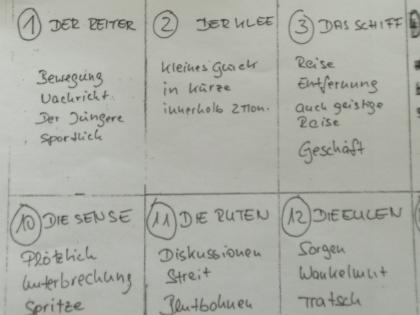 1 DER REITER
Bewegung
Nachricht
Der Jüngere
Sportlich
2 DER KLEE
kleines Glück
in kürze
innerhalb 2 Mon.
3 DAS SCHIFF
Reise
Entfernung
auch geistige
Reise
Geschäft
10 DIE SENSE
Plötzlich
Unterbrechung
Spritze
11 DIE RUTEN
Diskussionen
Streit
12 DIE EULEN
Sorgen
Wankelmut
Tratsch